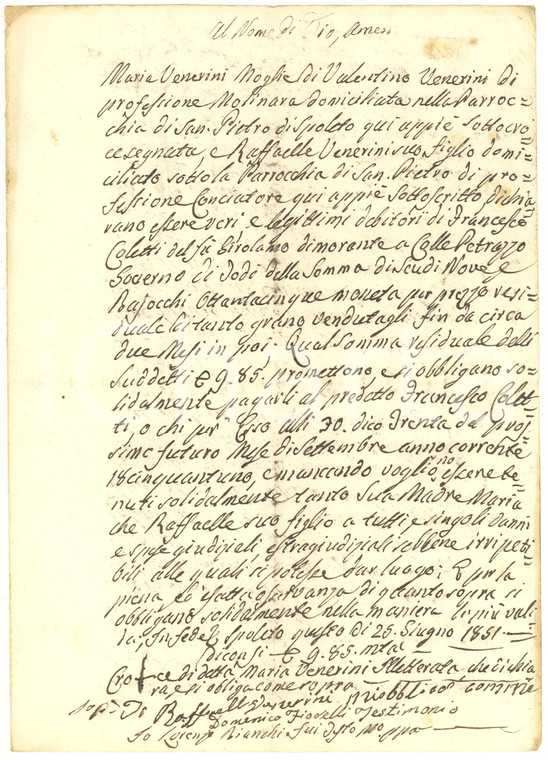 Al Nome di Dio, Amen
Maria Venerini Moglie di Valentino Venerini di
professione Molinara domiciliata nella Parroc=
chia di San Pietro di Spoleto qui appiè sottocro
cesegnata, e Raffaelle Venerini suo figlio domi=
ciliato sotto la Parrocchia di San Pietro di pro=
fessione Conciatore qui appiè sottoscritto dichia
rano essere veri e legittimi debitori di Francesco
Coletti del fù Girolamo dimorante a Colle Petrazzo
Governo di Todi della Somma di Scudi Nove, e
Bajocchi Ottantacinque moneta per prezzo resi=
duale di tanto grano vendutagli fin da circa
due Mesi in poi. Qual Somma residuale delli
suddetti 9. 85. promettono e si obbligano so=
lidalmente pagarli al predetto Francesco Colet=
ti, o chi per Esso alli 30. dico Trenta del pros=
simo futuro Mese di Settembre anno corrente
18cinquantuno, e mancando vogliono essere te=
nuti solidalmente tanto Sua Madre Maria
che Raffaelle suo figlio a tutti e singoli danni
e spese giudiziali, estragiudiziali sebbene irripeti=
bili, alle quali si potesse dar luogo; E per la
piena ed esatta osservanza di quanto sopra si
obbligano solidalmente nella maniera la più vali
da, In fede Spoleto questo dì 25. Giugno 1851.
Dicon si 9. 85. mta
Croce di detta Maria Venerini Illetterata che dichia
ra, e si obliga come sopra
Io Raffaell Venerini mi obbligo come
Domenico Fiorelli Testimonio
Io Lorenzo Bianchi fui